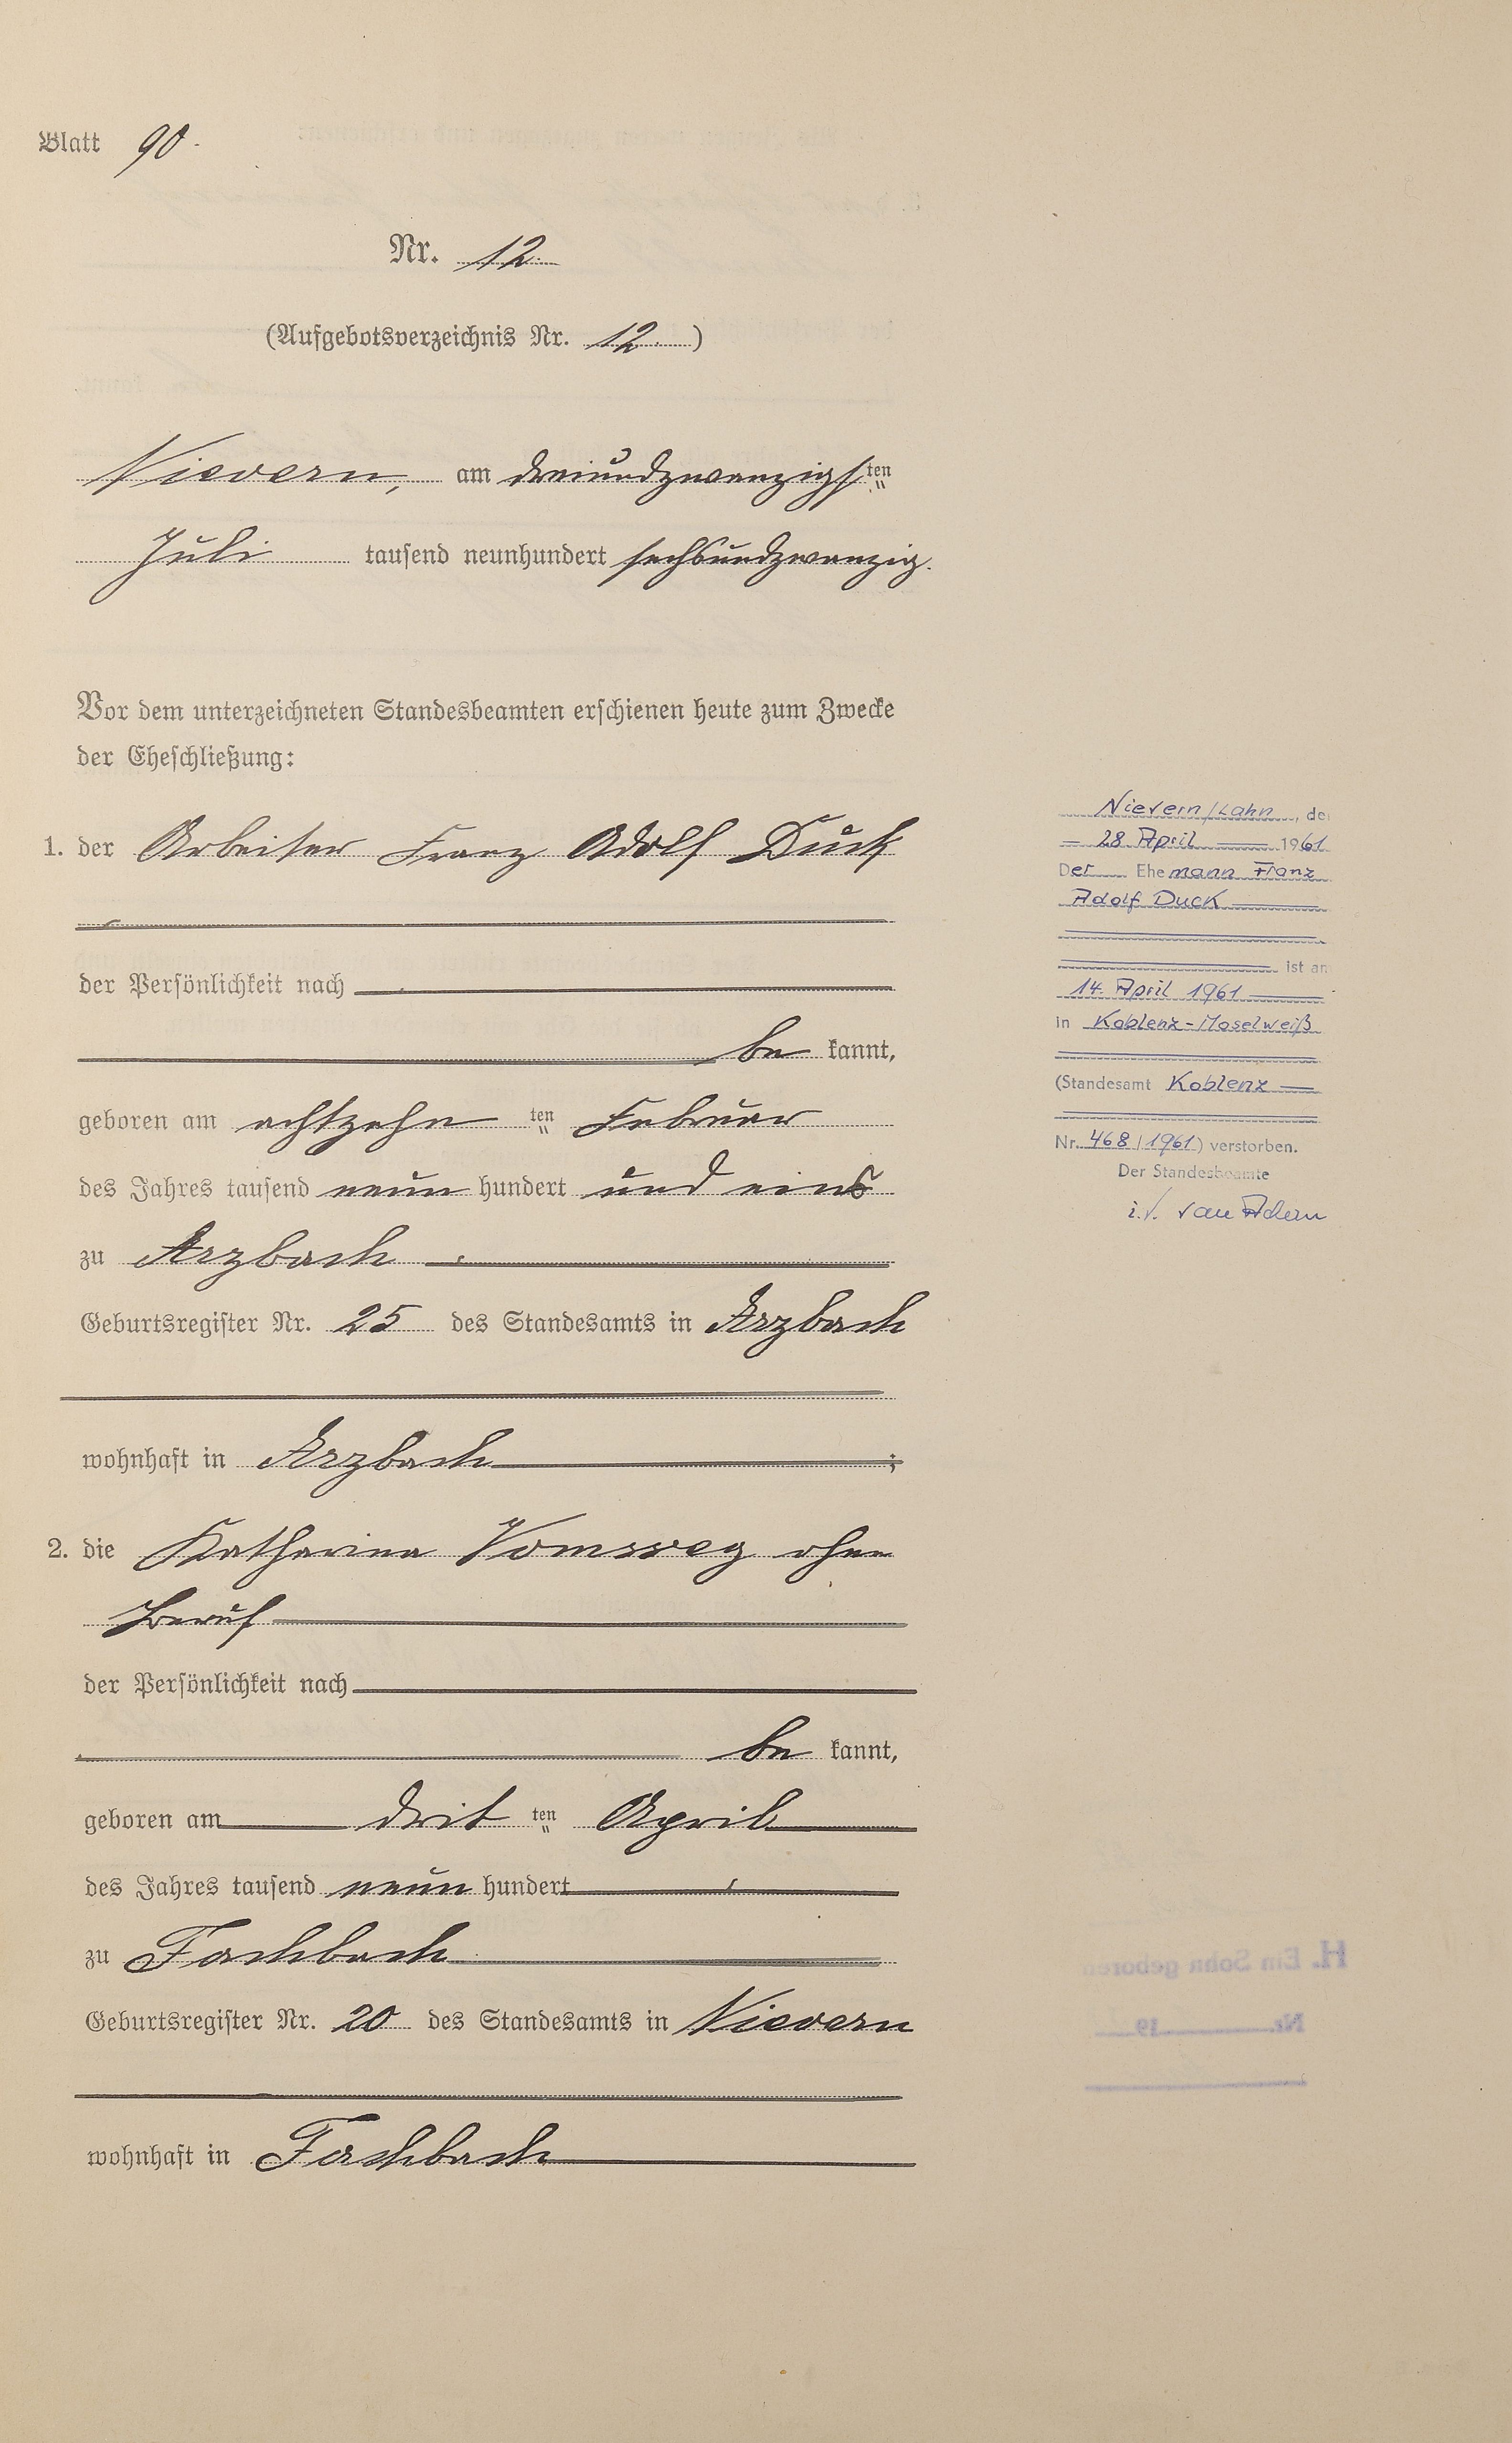 Blatt 90.
Nr. 12.
(Aufgebotsverzeichnis Nr. 12.)
Nievern, am dreiundzwanzigsten
Juli tausend neunhundert sechsundzwanzig.
Vor dem unterzeichneten Standesbeamten erschienen heute zum Zwecke
der Eheschließung:
1. der Arbeiter Franz Adolf Duck
der Persönlichkeit nach
be kannt,
geboren am achtzehn ten Februar
des Jahres tausend neun hundert und eins
zu Arzbach
Geburtsregister Nr. 25 des Standesamts in Arzbach
wohnhaft in Arzbach ;
2. die Katharina Vomsweg ohne
Beruf
der Persönlichkeit nach
be kannt,
geboren am drit ten April
des Jahres tausend neun hundert
zu Fachbach
Geburtsregister Nr. 20 des Standesamts in Nievern
wohnhaft in Fachbach
Nievern/Lahn, de
28 April 1961
Der Ehemann Franz
Adolf Duck
ist am
14. April 1961
in Koblenz-Moselweiß
(Standesamt Koblenz
Nr. 468/1961) verstorben.
Der Standesbeamte
i.V.
H. Ein Sohn geboren
Nr. 19